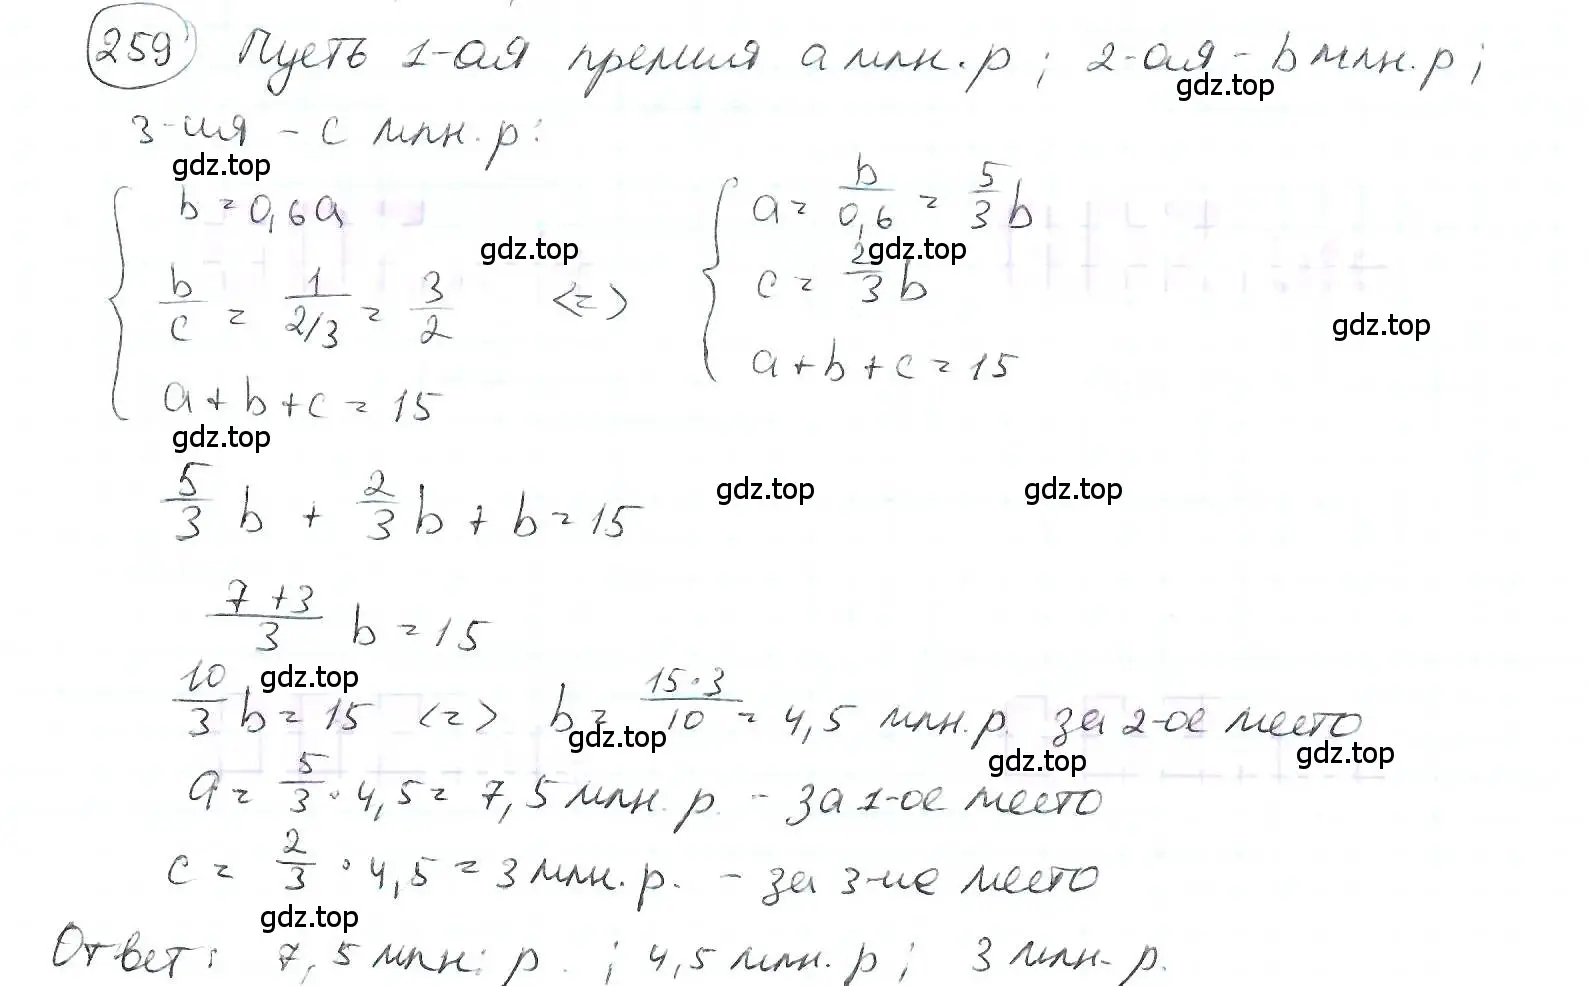 259 Пусть 1-ая премия a млн. р; 2-ая - b млн. р;
gdz.top
3-ия - c млн. р:
gdz.top
b = 0,6a
a = b/0,6 = 5/3 b
gdz.top gdz.top
b/c = 1/(2/3) = 3/2 <=> c = 2/3 b
gdz.top
a + b + c = 15
a + b + c = 15
gdz.top
5/3 b + 2/3 b + b = 15
gdz.top gdz.top
(7 + 3)/3 b = 15
gdz.top
10/3 b = 15 <=> b = (15 · 3)/10 = 4,5 млн. р. за 2-ое место
gdz.top gdz.top gdz.top
a = 5/3 · 4,5 = 7,5 млн. р. - за 1-ое место
c = 2/3 · 4,5 = 3 млн. р. - за 3-ие место
gdz.top
Ответ: 7,5 млн. р. ; 4,5 млн. р ; 3 млн. р.